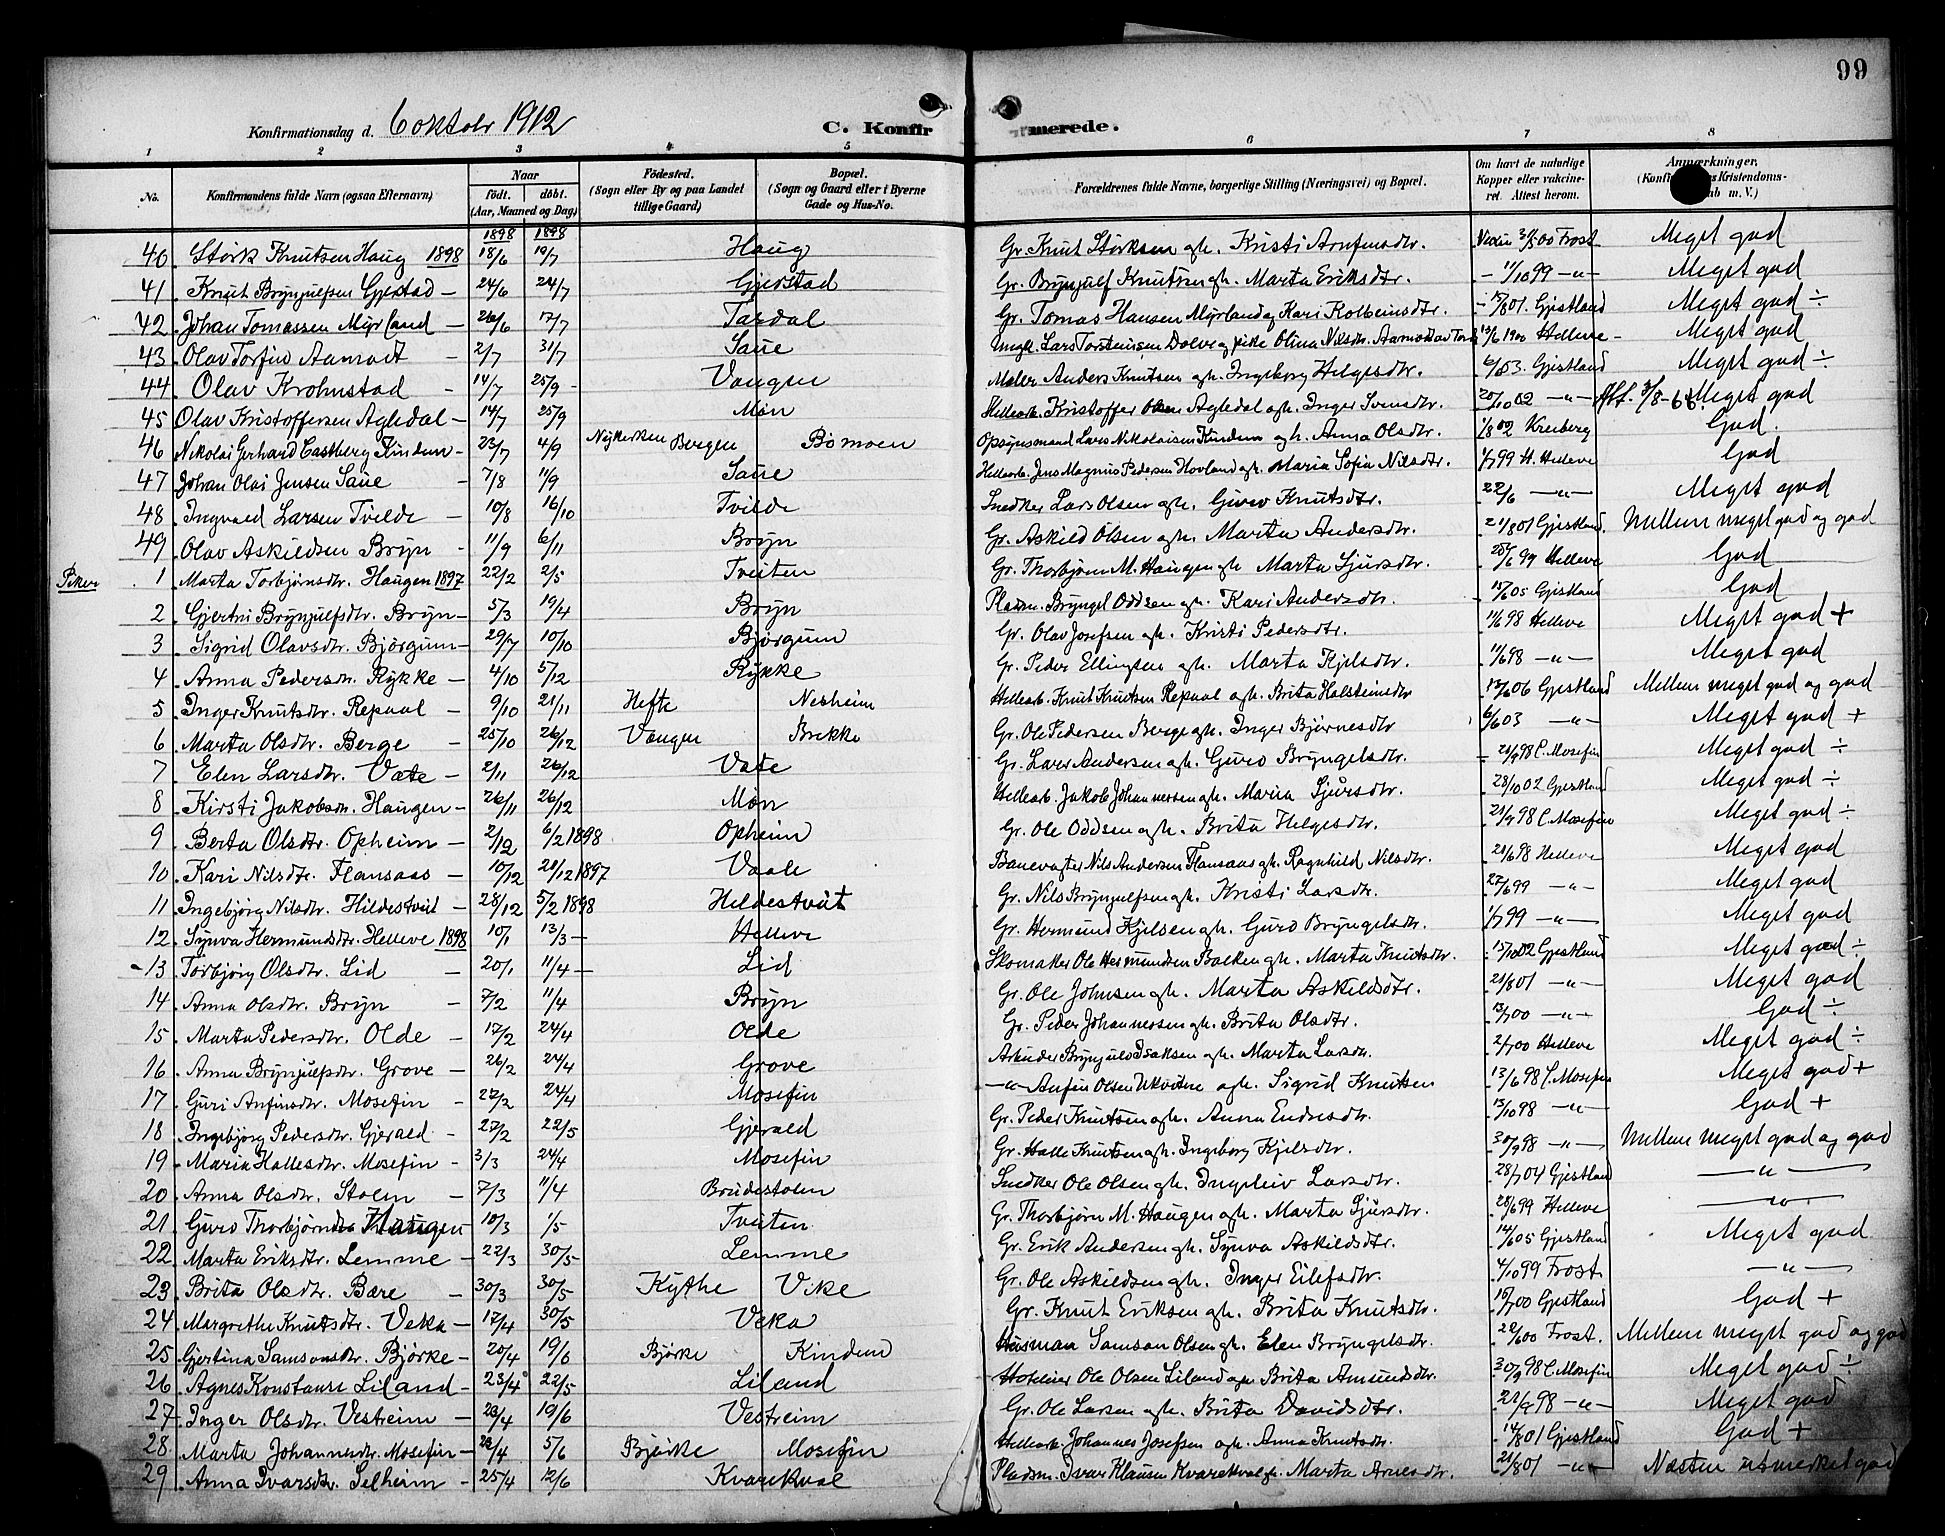 99
Konfirmationsdag d. 6 oktober 1912 C. Konfirmerede.
1 2 3 4 5 6 7 8
No. Konfirmandens fulde Navn (ogsaa Efternavn) Naar födt. döbt. (Aar, Maaned og Dag) Födested. (Sogn eller By og paa Landet tillige Gaard) Bopæl. (Sogn og Gaard eller i Byerne Gade og Hus-No. Forældrenes fulde Navne, borgerlige Stilling (Næringsvei) og Bopæl. Om havt de naturlige Kopper eller vakcineret. Attest herom. Anmærkninger.
1898 1898
40. Størk Knutsen Haug 1898 18/6 10/7 Haug Gr. Knut Størksen gh. Kristi Arnfinsdtr. Frost Meget god
41. Knut Brynjulfsen Gjerstad – 24/6 24/7 Gjerstad Gr. Brynjulf Knutsen gh. Marta Eriksdtr. – 11/10 99 –"– Meget god
42. Johan Tomassen Myrland – 26/6 17/7 Tardal Gr. Tomas Hansen Myrland og Kari Kolbeinsdtr. Gjestland Meget god ÷
43. Olav Torfin Aamodt – 2/7 31/7 Saue Ungk. Lars Torsteinsen Dolve og pike Olina Nilsdtr. 13/6 1900 Helleve – Meget god
44. Olav Krohnstad – 14/7 25/9 – Vangen Maler Anders Knutsen gh. Ingeborg Helgesdtr. Gjestland Meget god ÷
45. Olav Kristoffersen Agledal – 14/7 25/9 Møn Hellearb. Kristoffer Olsen Agledal og h. Inger Svensdtr. 20/10 02 –"– Meget god
46. Nikolai Gerhard Castberg Kindem – 23/7 4/9 Nykirken Bergen Bømoen Opsynsmand Lars Nikolaisen Kindem og h. Anna Olsdtr. 1/8 02 Kreiberg God.
47. Johan Olai Jensen Saue – 7/8 11/9 Saue Hellearb. Jens Magnus Pedersen Hovland gh. Maria Sofia Nilsdtr. 1/7 99 H. Helleve God
48. Ingvald Larsen Tvilde – 10/8 16/10 Tvilde Snedker Lars Olsen gh. Guro Knutsdtr. 22/6 –"– Meget god
49. Olav Askildsen Bryn – 11/9 6/11 Bryn Gr. Askild Olsen og h. Marta Andersdtr. 21/8 01 Gjestland. Mellem meget god og god
Piker 1. Marta Torbjørnsdtr. Haugen 1897 22/2 2/5 Tveiten Gr. Thorbjørn M. Haugen gh Marta Sjursdtr. 25/6 97 Helleve God
2 Gjertrui Brynjulfsdtr. Bryn – 5/3 19/4 Bryn Pladsm. Bryngel Oddsen gh. Kari Andersdtr. 15/6 05 Gjestland God
3 Sigrid Olavsdtr. Bjørgum – 29/7 10/10 Bjørgum Gr. Olav Josefsen gh. Kristi Pedersdtr. 11/6 98 Helleve Meget god +
4 Anna Pedersdtr. Rykke – 4/10 5/12 Rykke Gr. Peder Ellingsen gh. Marta Kjelsdtr. 11/6 98 –"– Meget god
5 Inger Knutsdtr. Repaal – 9/10 21/11 Hefte Nesheim Hellearb. Knut Knutsen Repaal gh. Brita Holsteinsdtr 12/6 06 Gjestland Mellem meget god og god
6 Marta Olsdtr. Berge – 25/10 26/12 Vangen Brekke Gr. Ole Pedersen Berge gh. Inger Bjørnesdtr 6/6 03 –"– Meget god +
7 Elen Larsdtr. Væte – 2/11 26/12 Væte Gr. Lars Andersen gh. Guro Bryngelsdtr. 21/9 98 C. Mosefin Meget god ÷
8 Kirsti Jakobsdtr. Haugen – 26/11 26/12 Møn Hellearb. Jakob Johannesen gh. Maria Sjursdtr. 28/10 02 Gjestland Meget god ÷
9 Berta Olsdtr. Opheim – 2/12 6/2 1898 Opheim Gr. Ole Oddsen gh. Brita Helgesdtr. 21/9 98 C. Mosefin Meget god ÷
10 Kari Nilsdtr. Flansaas – 10/12 21/12 1897 Vaale Banevogter Nils Andersen Flansaas gh. Ragnhild Nilsdtr. 21/6 98 Helleve Meget god
11 Ingebjørg Nilsdtr. Hildestveit – 28/12 5/2 1898 Hildestveit Gr. Nils Brynjulfsen gh. Kristi Larsdtr. 27/6 99 –"– Meget god
12 Synva Hermundsdtr. Helleve 1898 10/1 13/3 – Helleve Gr. Hermund Kjelsen gh. Guro Bryngelsdtr. 1/7 99 –"– Meget god
13 Torbjørg Olsdtr. Lid – 20/1 11/4 – Lid Skomaker Ole Hermundsen Bakken gh. Marta Knutsdtr. 15/10 02 Gjestland Meget god ÷
14 Anna Olsdtr. Bryn – 7/2 11/4 Bryn Gr. Ole Johnsen gh. Marta Askildsdtr. 21/8 01 –"– Meget god
15 Marta Pedersdtr. Olde – 17/2 24/4 Olde Gr. Peder Johannessen gh. Brita Olsdtr. 13/7 00 –"– God ÷
16 Anna Brynjulfsdtr. Grove – 26/2 24/4 Grove Arbeider Brynjulv Isaksen gh. Marta Larsdtr. 2/7 00 Helleve Meget god ÷
17 Guri Anfinsdtr. Mosefin – 22/2 24/4 Mosefin –"– Anfin Olsen Ukvitne og h. Sigrid Knutsen 13/6 98 C. Mosefin Meget god +
18 Ingebjørg Pedersdtr. Gjerald – 27/2 22/5 Gjerald Gr. Peder Knutsen gh. Anna Endresdtr. 15/10 98 –"– God +
19 Maria Hallesdtr. Mosefin – 3/3 24/4 Mosefin Gr. Halle Knutsen gh. Ingeborg Kjelsdtr. 30/9 98 –"– Mellem meget god og god
20 Anna Olsdtr. Stolen – 7/3 11/4 Brudestolen Snedker Ole Olsen gh. Ingeleiv Larsdtr. 28/7 04 Gjestland –"–
21 Guro Thorbjørnsdtr Haugen 10/3 1/5 Tveiten Gr. Thorbjørn M. Haugen gh. Marta Sjursdtr. 28/6 99 Helleve –"–
22 Marta Eriksdtr. Lemme – 22/3 30/5 Lemme Gr. Erik Andersen gh. Synva Askildsdtr. 14/6 05 Gjestland Meget god
23 Brita Olsdtr. Bære – 30/3 30/5 Kythe Vike Gr. Ole Askildsen gh. Inger Eilefsdtr. 4/10 99 Frost –"–
24 Margrethe Knutsdtr. Veka – 17/4 30/5 Veka Gr. Knut Eriksen gh. Brita Knutsdtr. 10/7 00 Gjestland God +
25 Gjertina Samsonsdtr. Bjørke – 20/4 19/6 Bjørke Kindem Husman Samson Olsen gh. Elen Bryngelsdtr. 22/6 00 Frost. Mellem meget god og god
26 Agnes Konstanse Liland – 23/4 22/5 Liland Hoteleier Ole Olsen Liland gh. Brita Amundsdtr. 30/9 98 C. Mosefin Meget god ÷
27 Inger Olsdtr. Vestreim – 23/4 19/6 Vestreim Gr. Ole Larsen gh. Brita Davidsdtr. 21/9 98 –"– Meget god
28 Marta Johannesdtr. Mosefin – 23/4 5/6 Bjørke Mosefin Hellearb. Johannes Josefsen gh. Anna Knutsdtr. 14/8 01 Gjestland God +
29 Anna Ivarsdtr. Selheim – 25/4 12/6 Kvarekval Pladsm. Ivar Klausen Kvarekval gh. Marta Arnesdtr. 21/8 01 –"– Næsten utmerket god